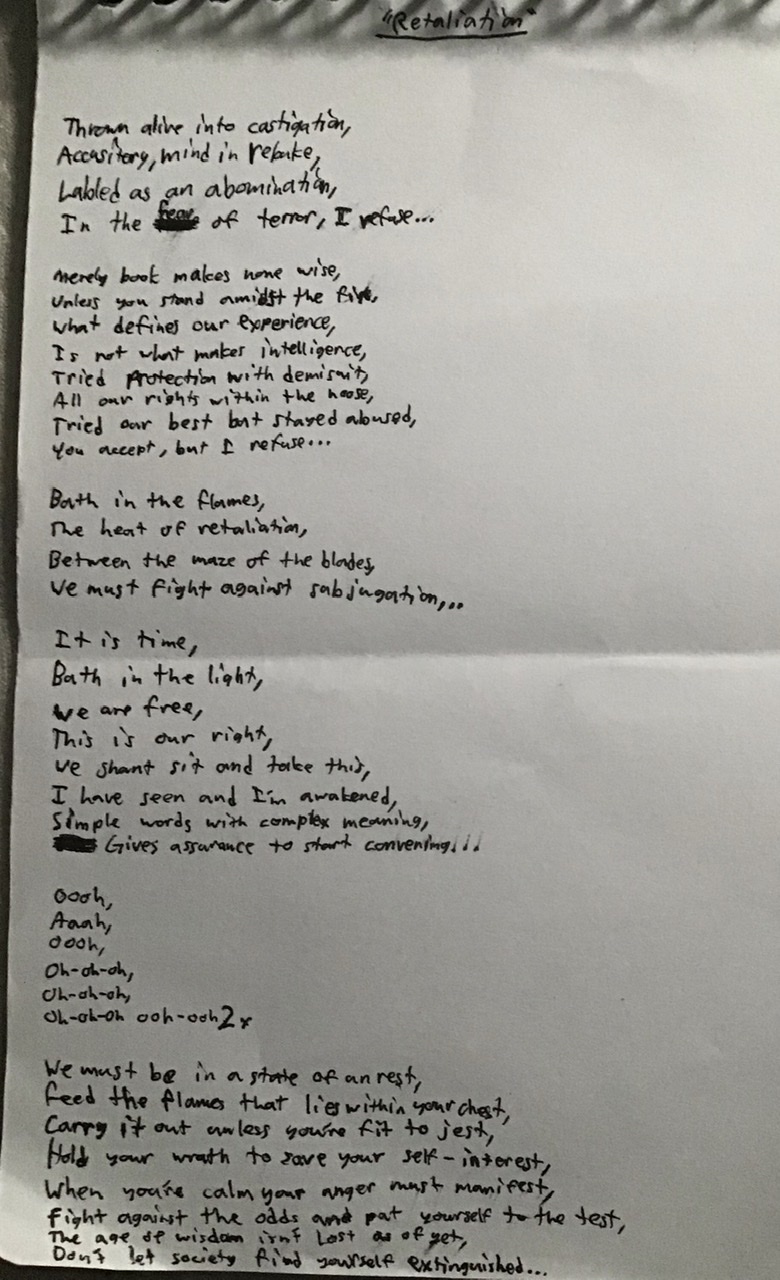 "Retaliation"
Thrown alive into castigation,
Accusitory, mind in rebuke,
Labled as an abomination,
In the fear of terror, I refuse...
Merely book makes none wise,
Unless you stand amidst the fire,
What defines our experience,
Is not what makes intelligence,
Tried protection with
All our rights within the noose,
Tried our best but stayed abused,
You accept, but I refuse...
Bath in the flames,
The heat of retaliation,
Between the maze of the blades,
We must fight against subjugation,...
It is time,
Bath in the light,
We are free,
This is our right,
We shant sit and take this,
I have seen and I'm awakened,
Simple words with complex meaning,
Gives assurance to start convening...
Oooh,
Aaah,
Oooh,
Oh-oh-oh,
Oh-oh-oh,
Oh-oh-oh ooh-ooh 2x
We must be in a state of unrest,
Feed the flames that lies within your chest,
Carry it out unless you're fit to jest,
Hold your wrath to save your self-interest,
When you're calm your anger must manifest,
Fight against the odds and put yourself to the test,
The age of wisdom isn't lost as of yet,
Don't let society find yourself extinguished...